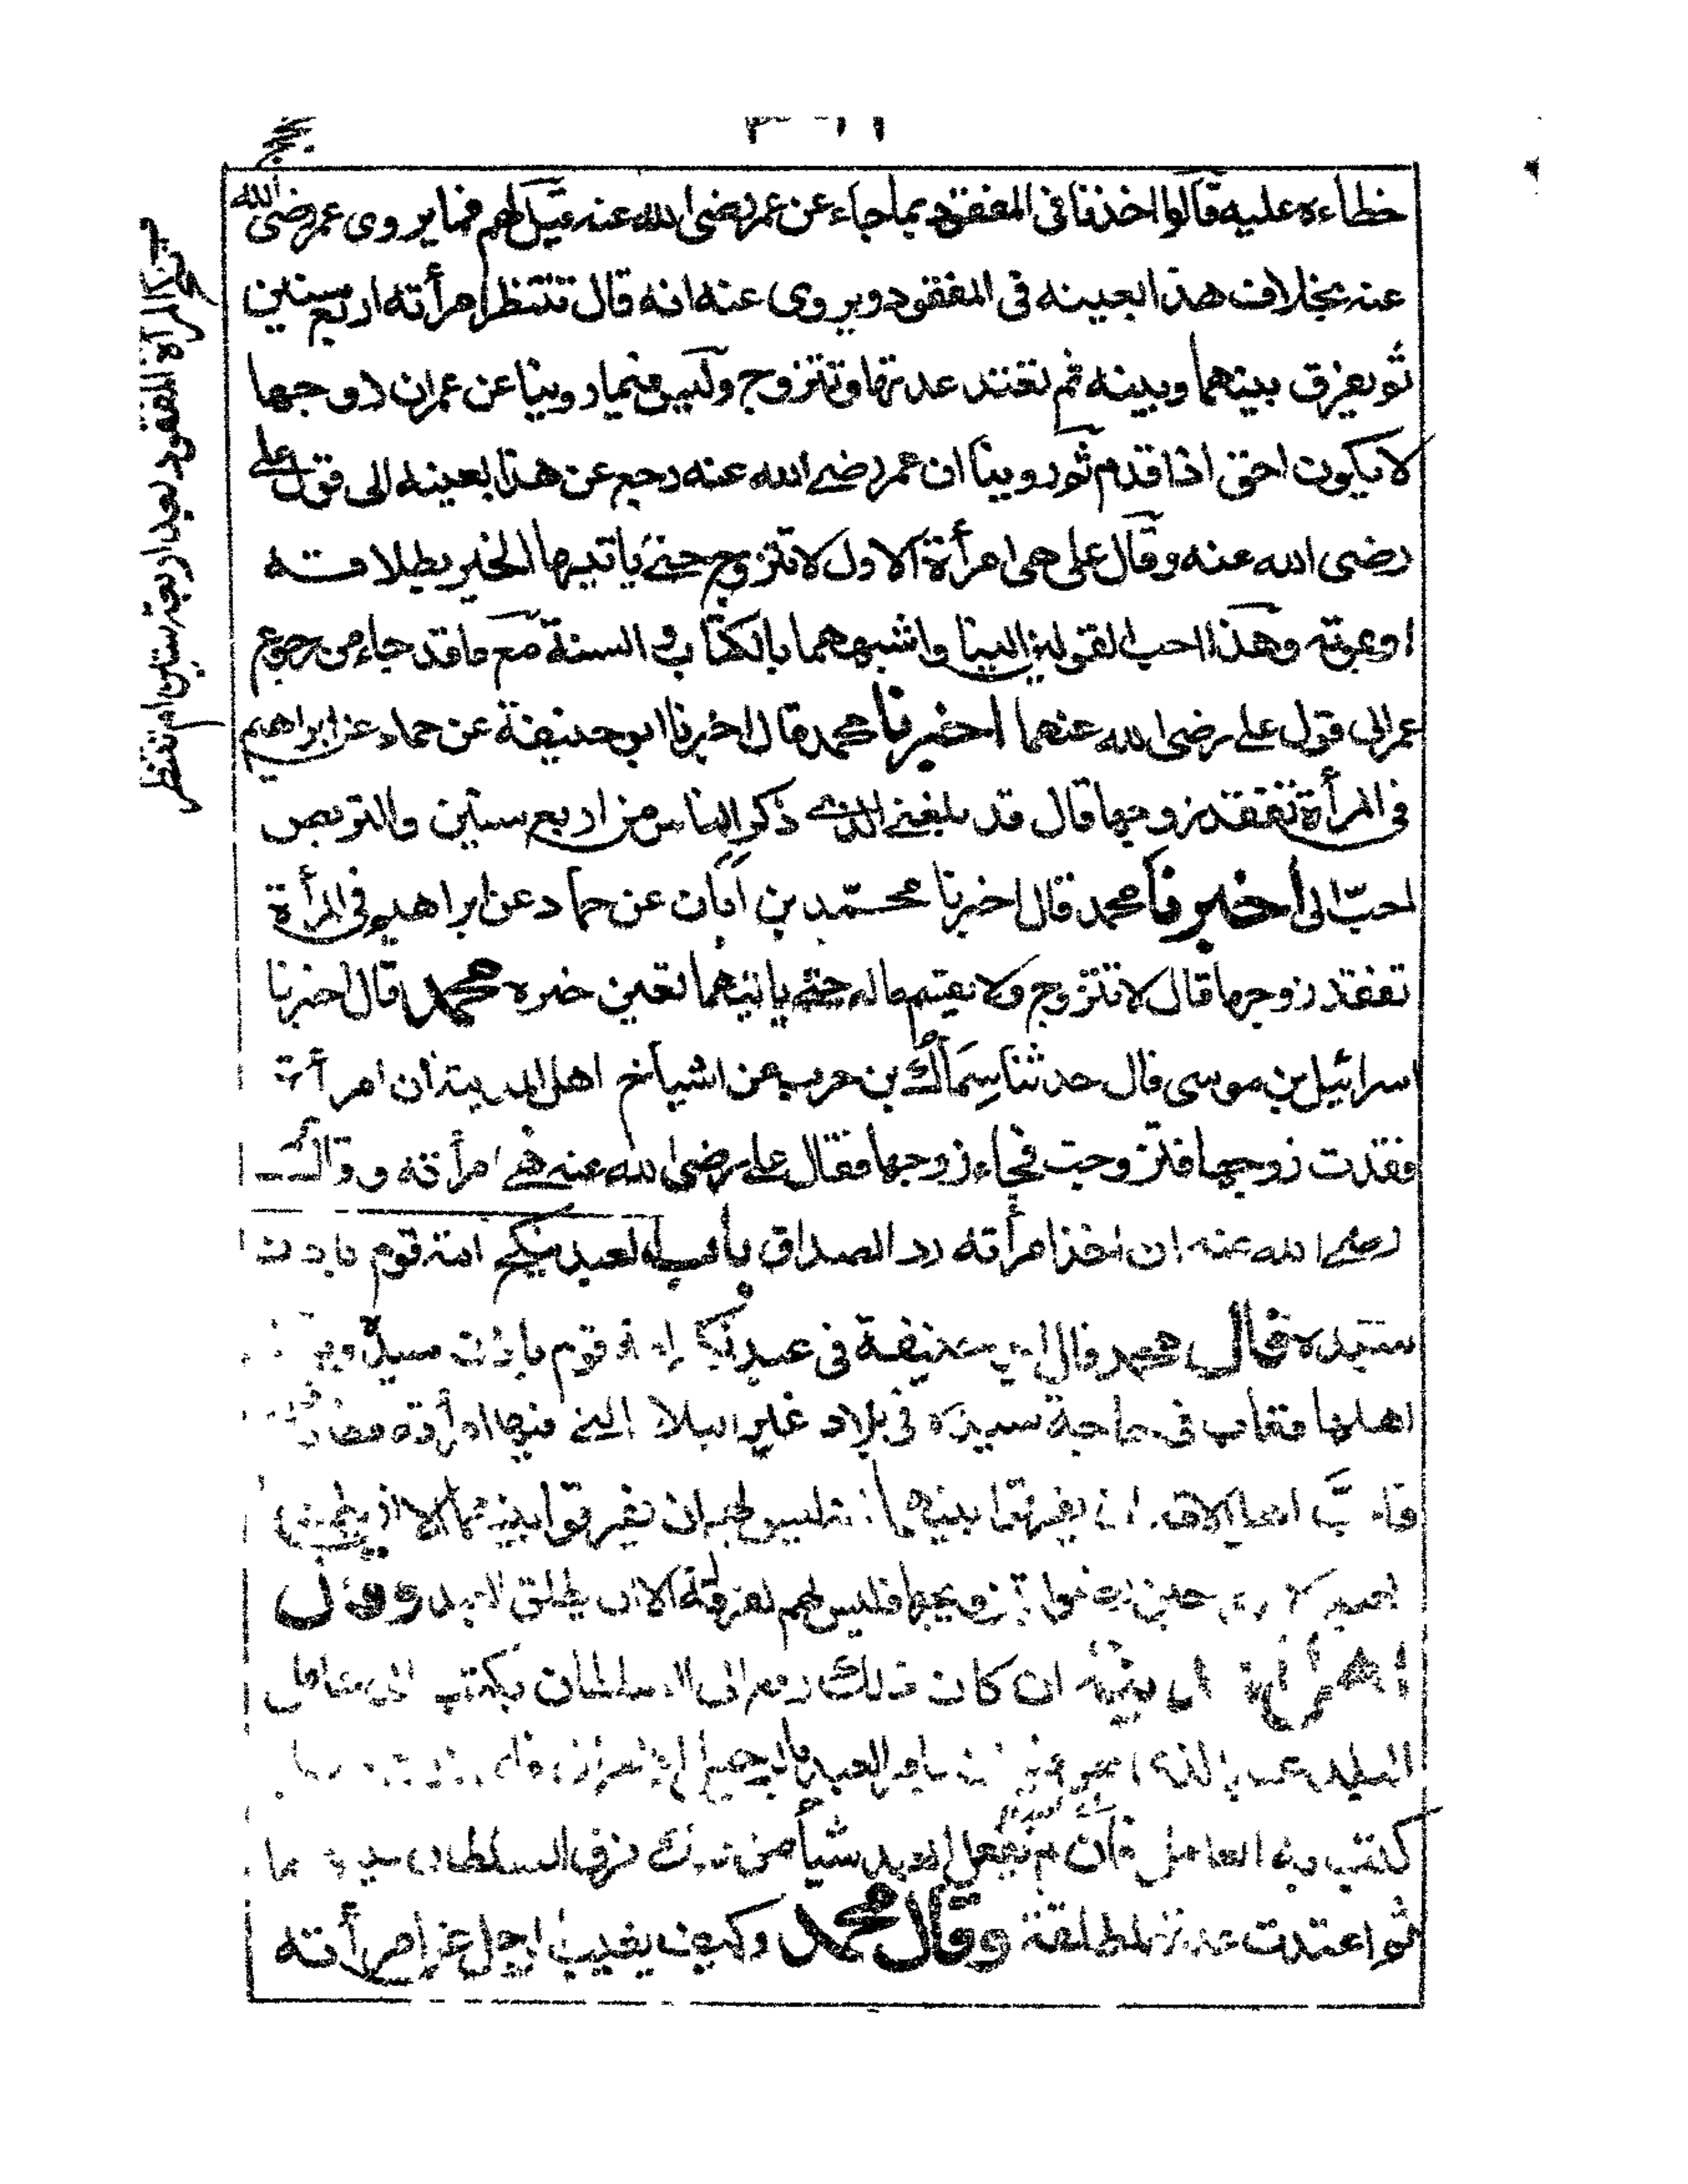 خطاءه عليه قالوا اخذنا فى المفقود بما جاء عن عمر رضى الله عنه قيل لهم فما يروى عمر رضى الله
عنه بخلاف هذا بعينه فى المفقود ويروى عنه انه قال تنتظر امرأته اربع سنين
ثم يفرق بينهما وبينه ثم تعتد عدتها وتتزوج وليس فيما روينا عن عمر ان زوجها
لا يكون احق اذا قدم ثم روينا ان عمر رضى الله عنه رجع عن هذا بعينه الى قول على
رضى الله عنه وقال على هى امرأة الاول لا تتزوج حتى ياتيها الخبر بطلاقه
او موته وهذا احب القولين الينا واشبههما بالكتاب والسنة مع ما قد جاء من رجوع
عمر الى قول على رضى الله عنهما اخبرنا محمد قال اخبرنا ابو حنيفة عن حماد عن ابراهيم
فى المرأة تفقد زوجها قال قد بلغنى الذى ذكر الناس من اربع سنين والتربص
احب الى اخبرنا محمد قال اخبرنا محمد بن ابان عن حماد عن ابراهيم فى المرأة
تفقد زوجها قال لا تتزوج ولا يقسم ماله حتى ياتيهما يقين خبره محمد قال اخبرنا
اسرائيل بن موسى قال حدثنا سماك بن حرب عن اشياخ اهل المدينة ان امرأة
فقدت زوجها فتزوجت فجاء زوجها فقال على رضى الله عنه هى امرأته وقال
رضى الله عنه ان اخذ امرأته رد الصداق باب العبد ينكح امة قوم باذن
سيده قال محمد قال ابو حنيفة فى عبد نكح امة قوم باذن سيده
اهلها فغاب فى حاجة سيده فى بلاد غير البلاد التى فيها امرأته
ان يفرقوا بينهما فليس لهم ان يفرقوا بينهما الا ان
حين زوجها فليس لهم تفرقة الا ان يطلق العبد وقال
اهل المدينة ان كان ذلك رفع الى السلطان يكتب الى عامل
البلد الذى العبد
كتب به العامل فان لم يفعل العبد شيأ من ذلك فرق السلطان بينهما
ثم اعتدت عدة المطلقة وقال محمد وكيف يغيب الرجل عن امرأته
المرأة المفقود بعد اربعة سنين ام تنتظر